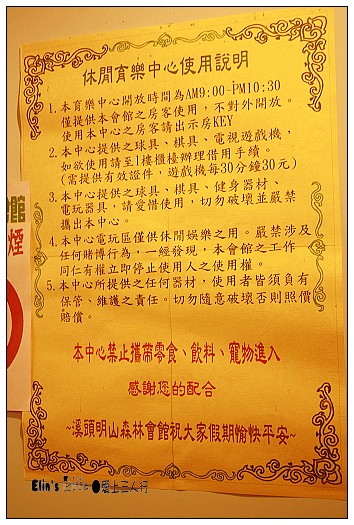 休閒育樂中心使用說明
1.本育樂中心開放時間為AM9:00-PM10:30
僅提供本會館之房客使用，不對外開放。
使用本中心之房客請出示房KEY
2.本中心提供之球具、棋具、電視遊戲機，
如欲使用請至1樓櫃檯辦理借用手續。
(需提供有效證件，遊戲機每30分鐘30元)
3.本中心提供之球具、棋具、健身器材、
電玩器具，請愛惜使用，切勿破壞並嚴禁
攜出本中心。
4.本中心電玩區僅供休閒娛樂之用。嚴禁涉及
任何賭博行為，一經發現，本會館之工作
同仁有權立即停止使用人之使用權。
5.本中心所提供之任何器材，使用者皆須負有
保管、維護之責任。切勿隨意破壞否則照價
賠償。
本中心禁止攜帶零食、飲料、寵物進入
感謝您的配合
~溪頭明山森林會館祝大家假期愉快平安~
館
煙
Elin's